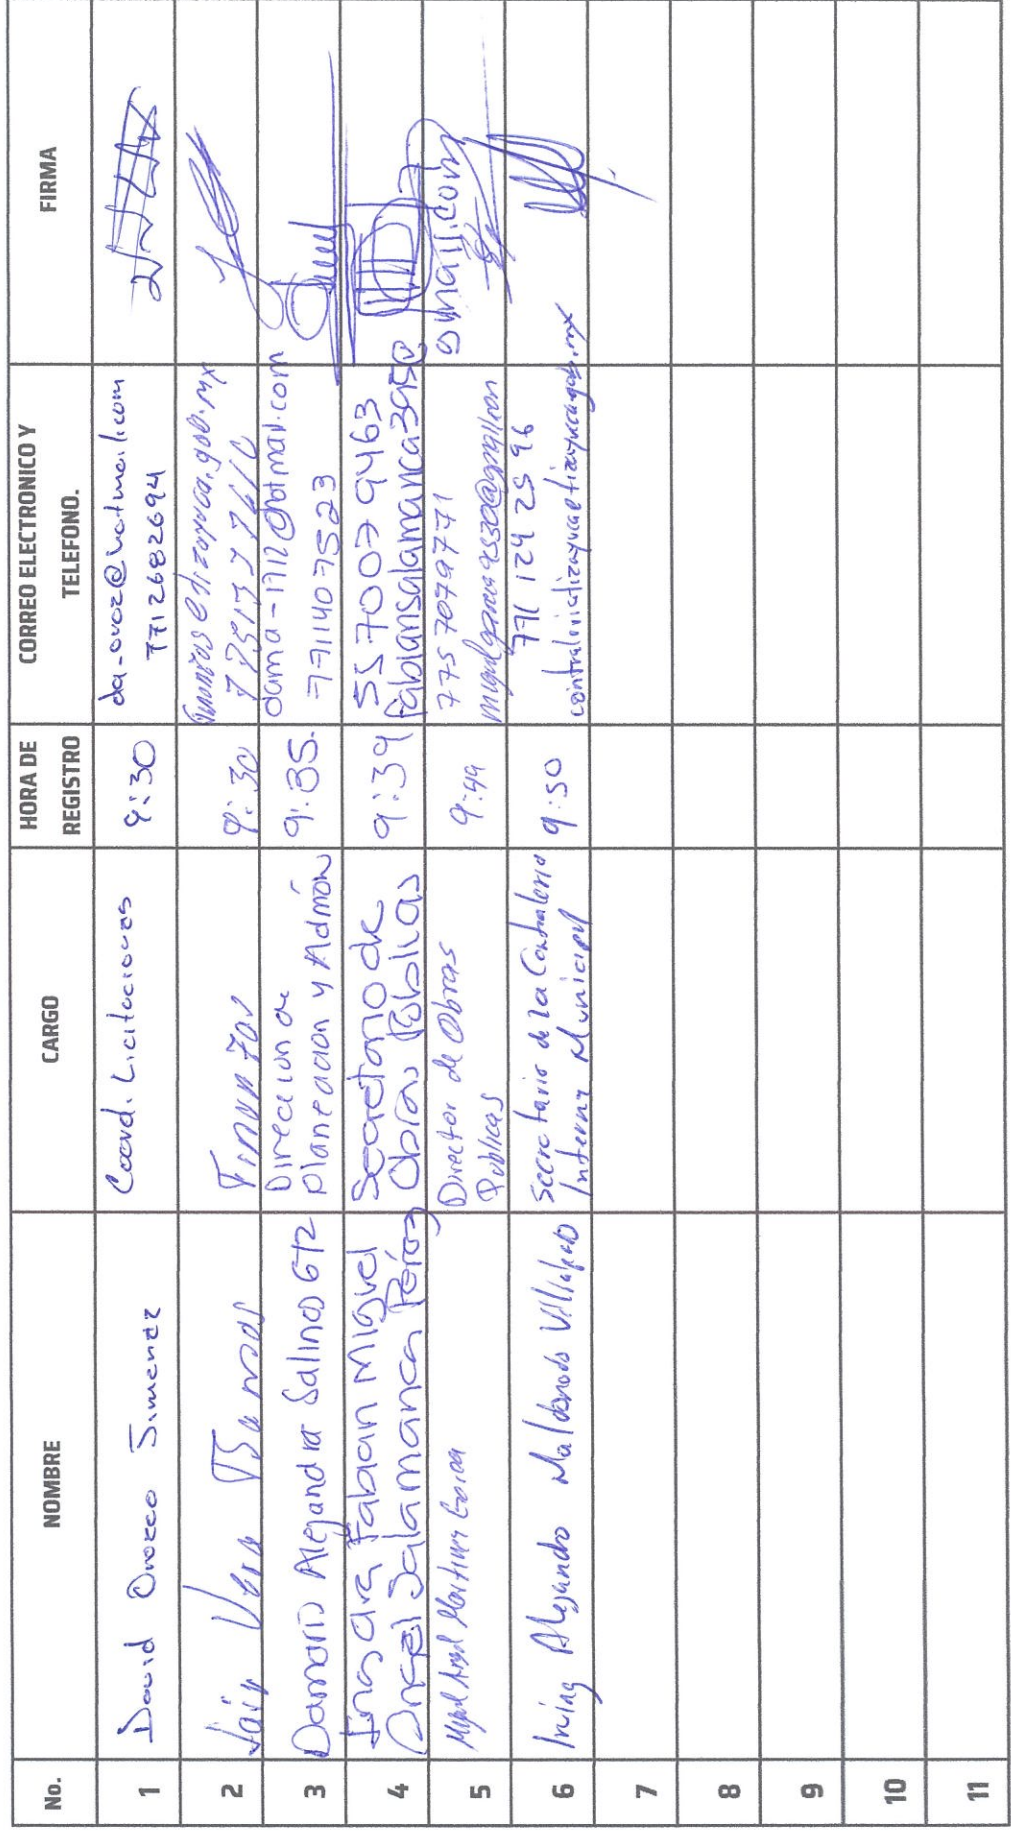 No.
NOMBRE
CARGO
HORA DE
REGISTRO
CORREO ELECTRONICO Y
TELEFONO.
FIRMA
1
David Orozco Jimenez
Coord. Licitaciones
9:30
da-oroz@hotmail.com
7712682694
2
Jair Vera
Finanzas
9:30
finanzas@tizayuca.gob.mx
3
Damaris Alejandra Salinas GTZ
Direccion de
Planeacion y Admón
9:35
dama-1712@hotmail.com
7711407523
4
Fabian Miguel
Angel Salamanca Pérez
Secretario de
Obras Públicas
9:39
5570079463
fabiansalamanca3950
gmail.com
5
Miguel Angel Martinez
Director de Obras
Publicas
9:49
775 7079771
6
Irving Alejandro Maldonado
Secretario de la Contraloria
Interna Municipal
9:50
771 124 25 96
7
8
9
10
11